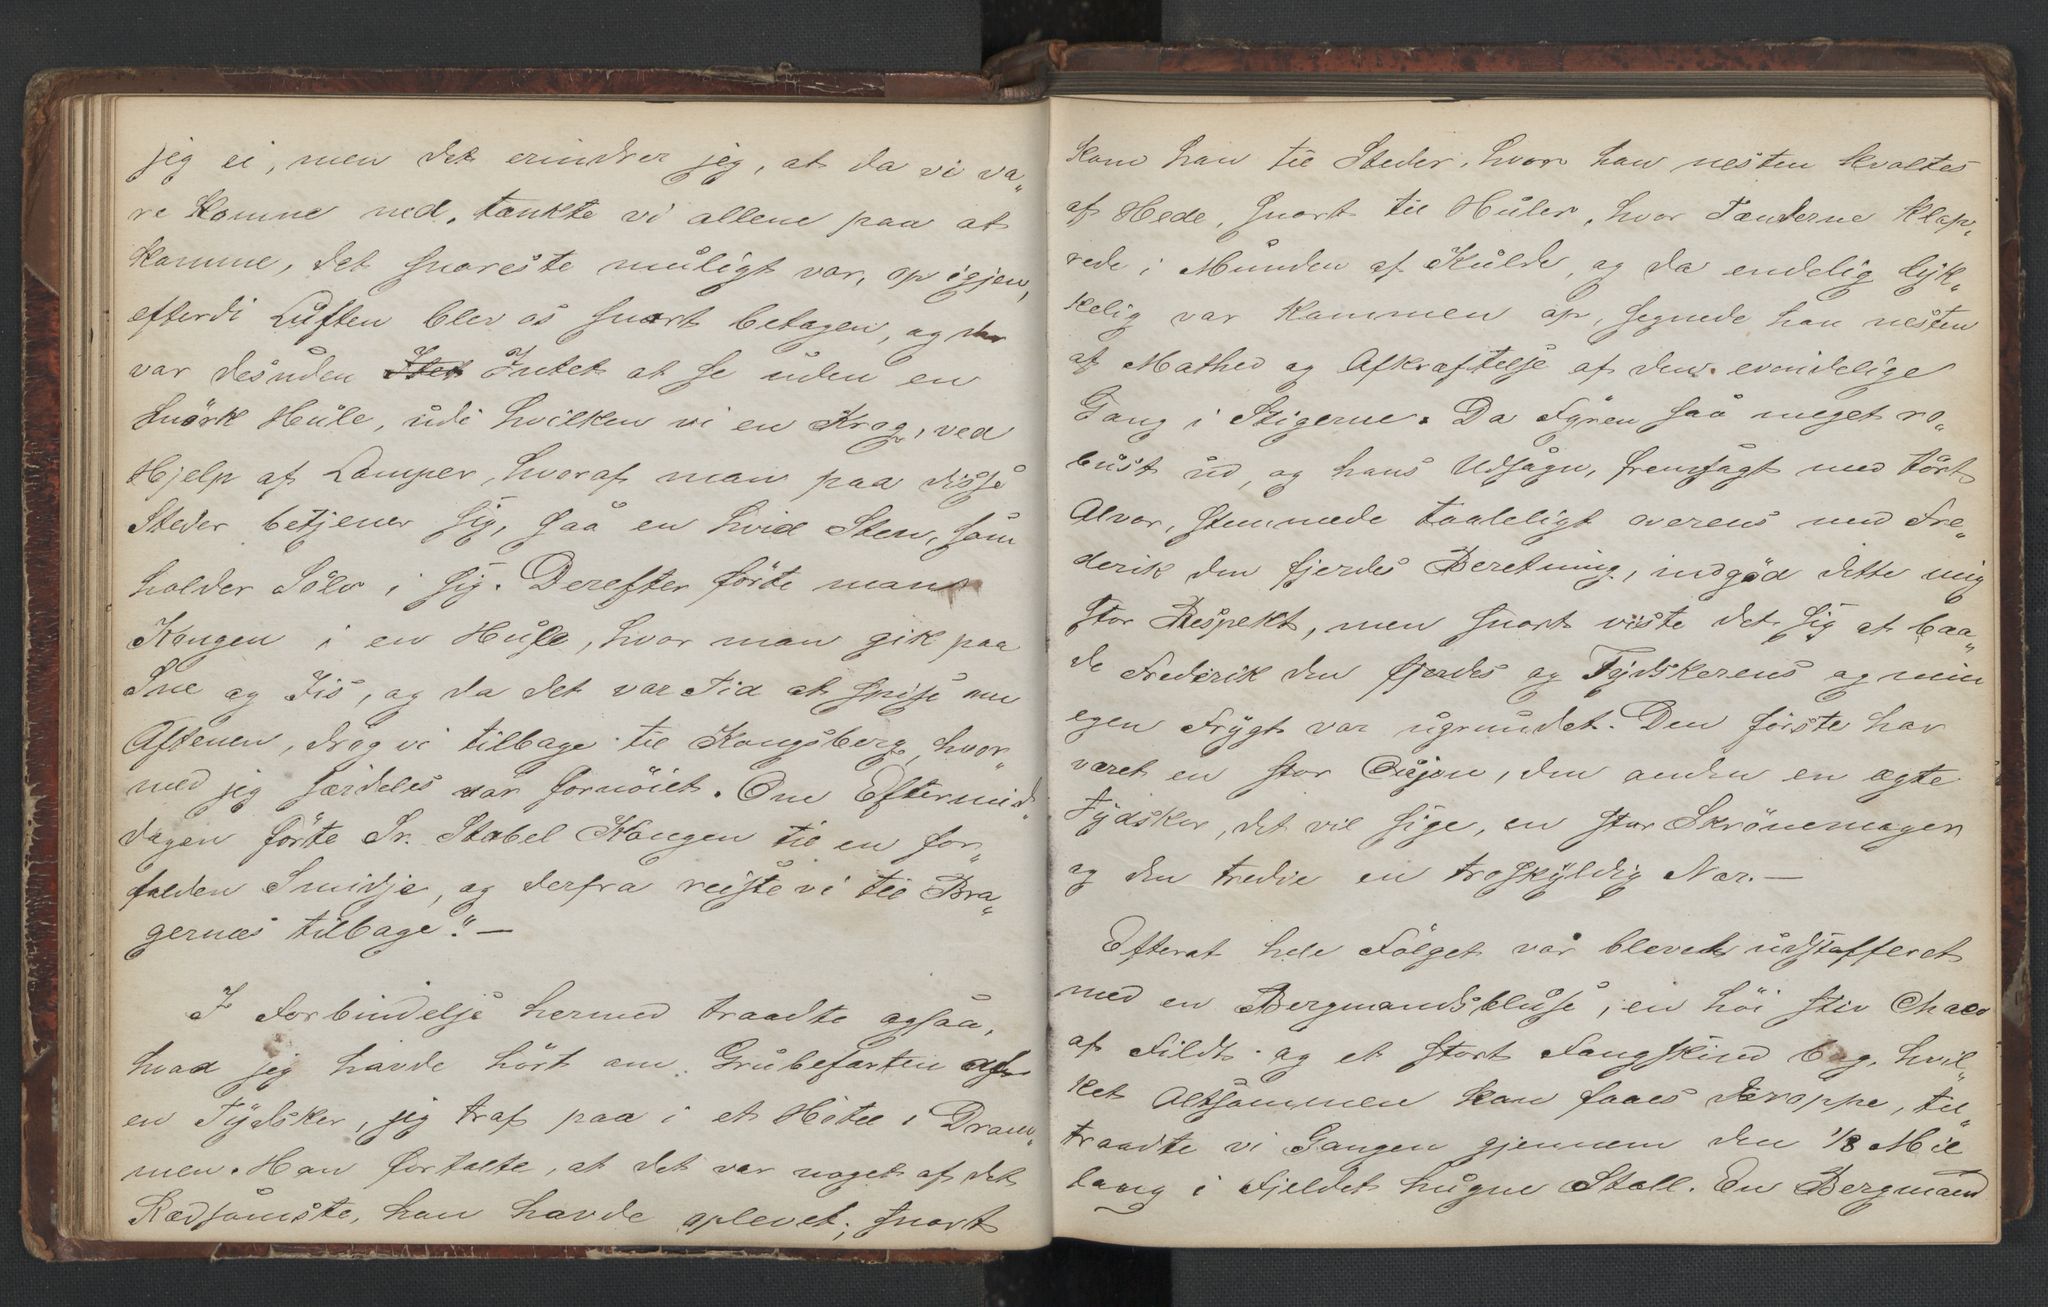 jeg ei, men det erindrer jeg, at da vi va„
re komne ned, tænkte vi allene paa at
komme, det snareste muligt var, op igjen,
efterdi Luften blev os snart betagen, og der
var desuden Intet at se uden en
Smörk Hule, udi hvilken vi en Krog, ved
Hjelp af Lamper, hvoraf man paa disse
Steder betjener sig, saa en hvid Sten, som
holder Sölv i sig. Derefter förte man
Kongen i en Hule, hvor man gik paa
Sne og Jis, og da det var Tid at spise om
Aftenen, drog vi tilbage til Kongsberg, hvor„
med jeg særdeles var fornöiet. Om Eftermid„
dagen förte Sr. Stabel Kongen til en for„
falden Smidje, og derfra reiste vi til Bra„
gernæs tilbage." —
I Forbindelse hermed traadte ogsaa,
hvad jeg havde hört om Grubefarten af
en Tydsker, jeg traf paa i et Hotel i Dram„
men. Han fortalte, at det var noget af det
Rædsomste, han havde oplevet; snart
kom han til Steder, hvor han nesten kvaltes
af Hede, snart til Huler, hvor Tænderne klap„
rede i Munden af Kulde, og da endelig lyk„
kelig var kommen op, segnede han nesten
af Mathed og Afkræftelse af den evindelige
Gang i Stigerne. Da Fyren saa meget ro„
bust ud, og hans Udsagn, fremsagt med tört
Alvor, stemmede taaleligt overens med Fre„
derik den fjerdes Beretning, indgöd dette mig
stor Respekt, men snart viste det sig at baa„
de Frederik den fjerdes og Tydskerens og min
egen Frygt var ugrundet. Den förste har
været en stor Cujon, den anden en ægte
Tydsker, det vil sige, en stor Skrönemager
og den tredie en troskyldig Nar. —
Efterat hele Fölget var blevet udstafferet
med en Bergmandsbluse, en höi stiv Chaco
af Fildt og et stort Fangskind bag, hvil„
ket Altsammen kan faaes deroppe, til„
traadte vi Gangen gjennem den 1/8 Mil
lang i Fjeldet hugne Stoll. En Bergmand